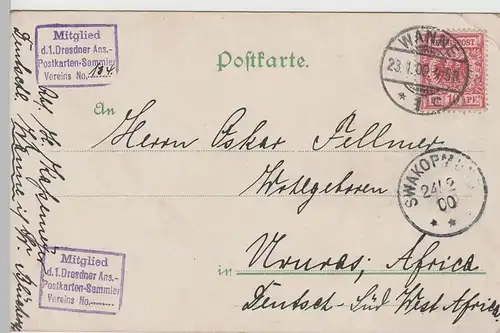 Mitglied
d.1.Dresdner Ans.-
Postkarten-Sammler
Vereins No. 134.
Postkarte.
WANNE
23.1.00
10 PF
An
Herrn Oskar Fellmer
Wohlgeboren
SWAKOPMUND
24/2
00
in Ururas, Africa
Deutsch-Süd West Africa
Mitglied
d.1.Dresdner Ans.-
Postkarten-Sammler
Vereins No.